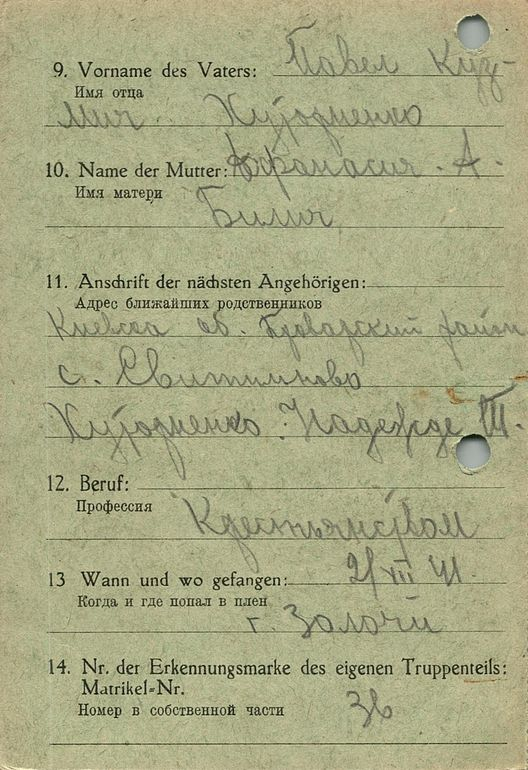 9. Vorname des Vaters: Павел Куз-
Имя отца
мич
10. Name der Mutter: Афанасия. А.
Имя матери
Билич
11. Anschrift der nächsten Angehörigen:
Адрес ближайших родственников
Киевска об. Броварский район
с.
Надежде Т.
12. Beruf:
Профессия
Крестьянством
13 Wann und wo gefangen: VII 41.
Когда и где попал в плен
г. Золочи
14. Nr. der Erkennungsmarke des eigenen Truppenteils:
Matrikel=Nr.
Номер в собственной части